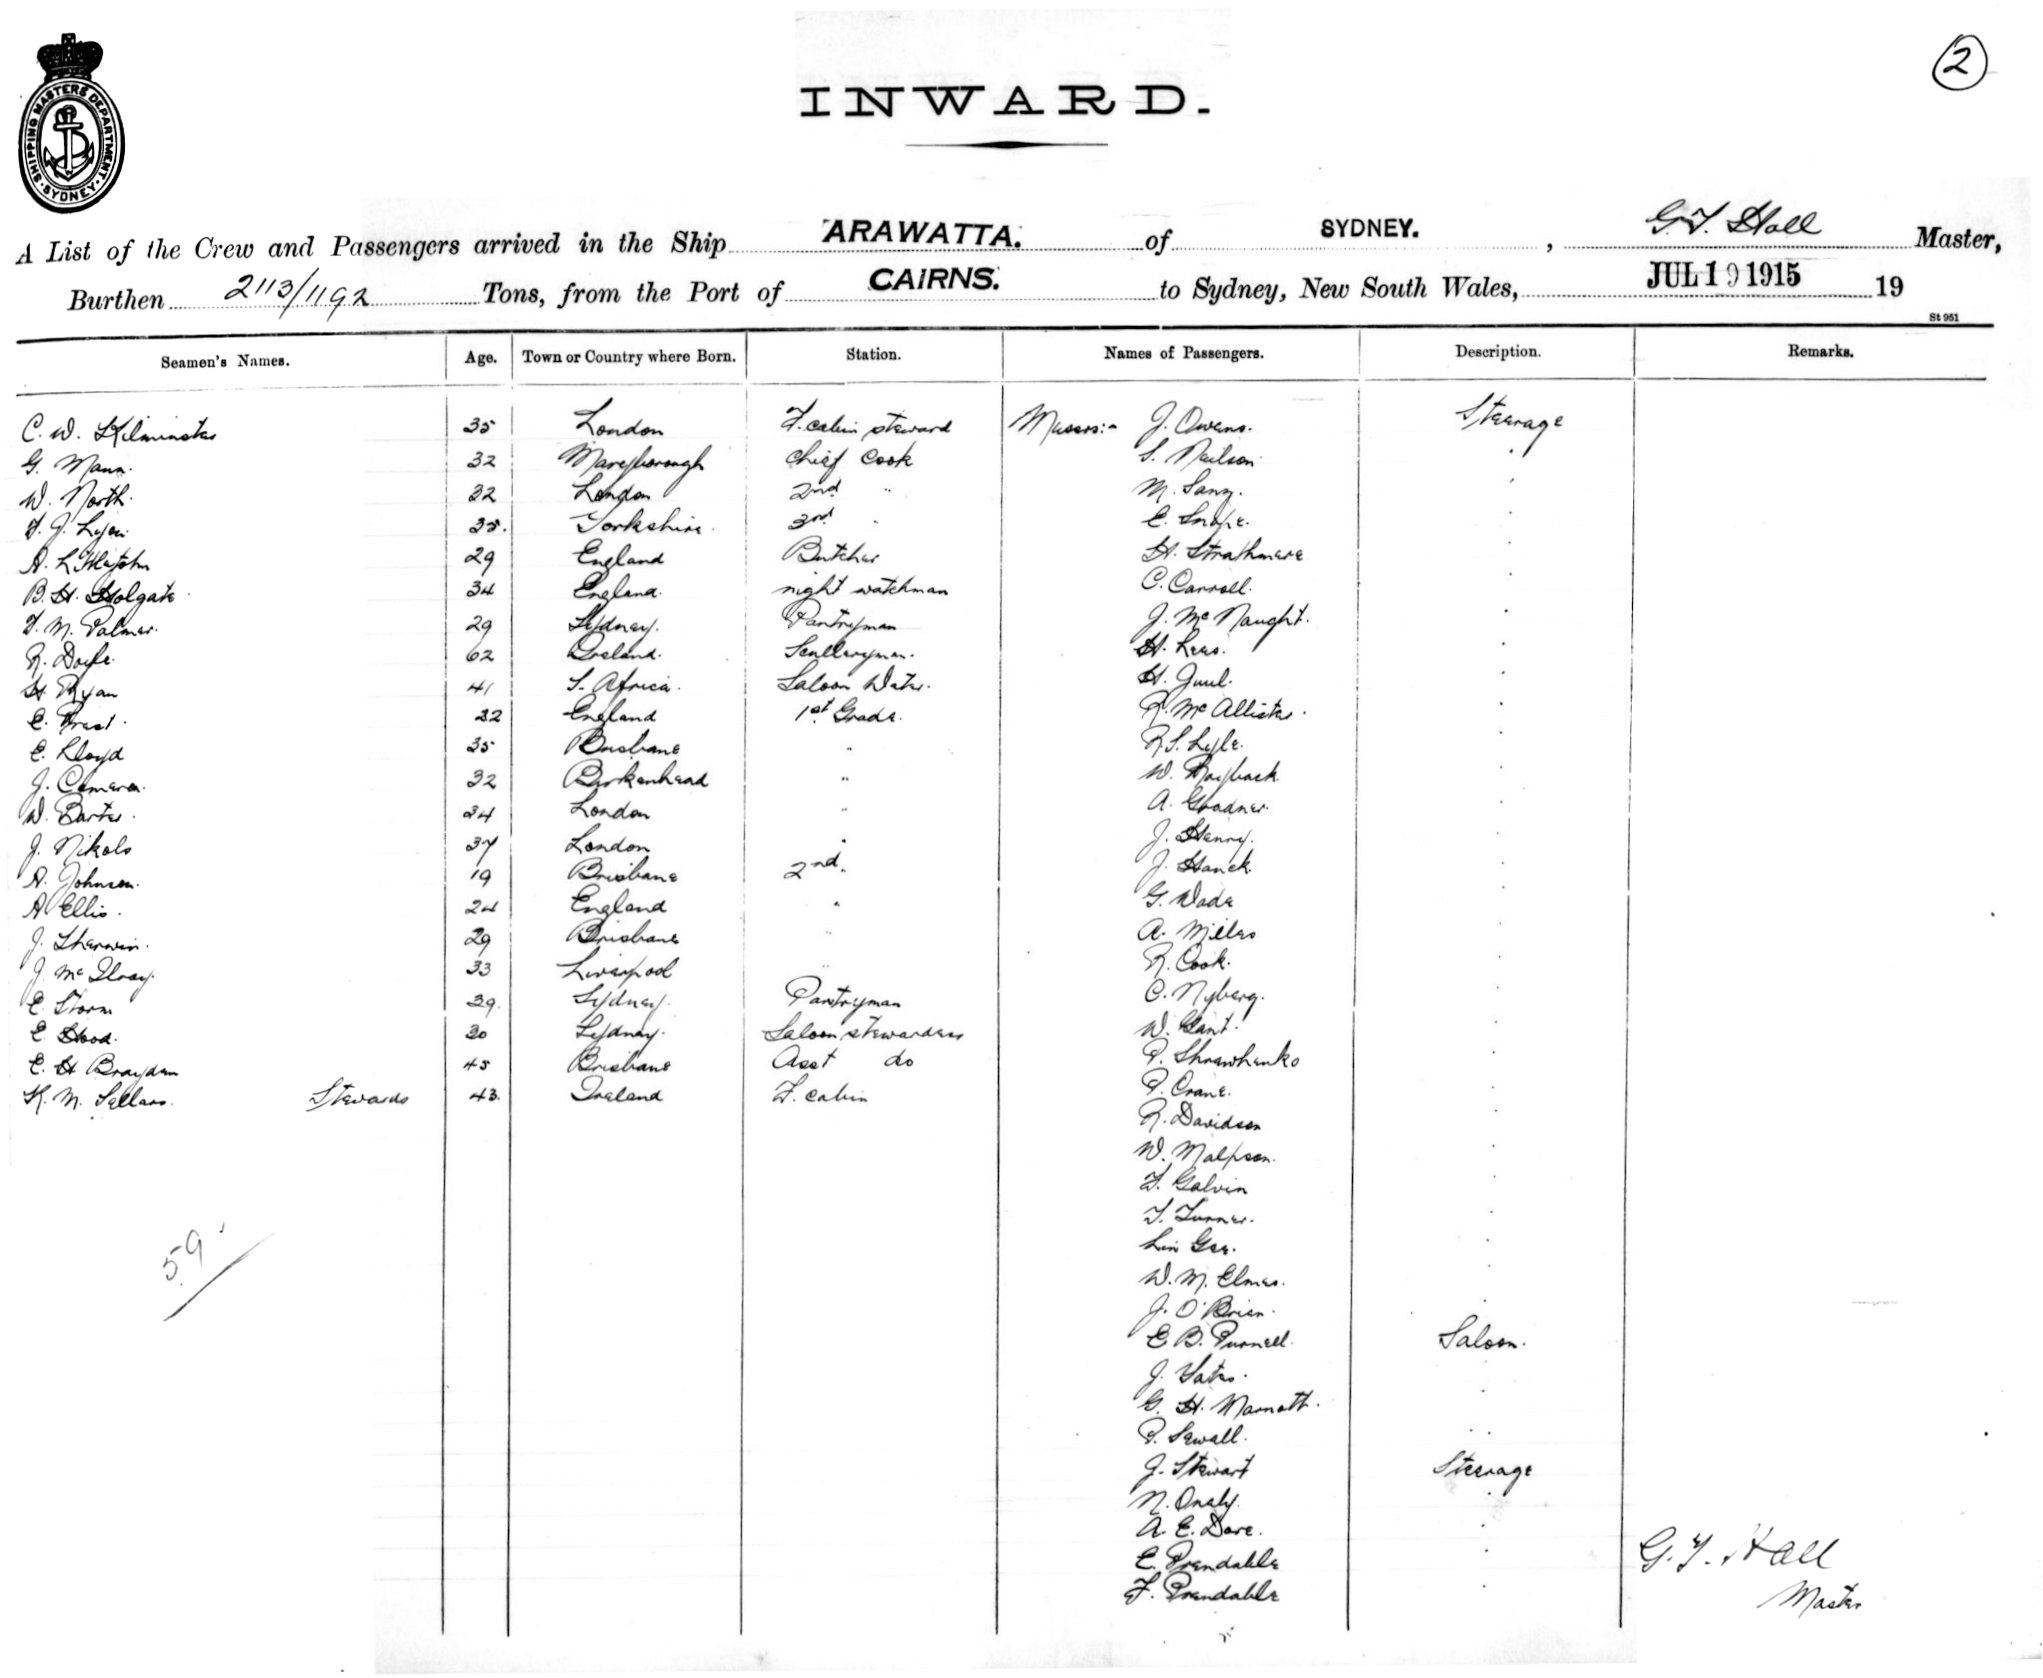 2
SHIPPING MASTERS DEPARTMENT. SYDNEY
INWARD.
A List of the Crew and Passengers arrived in the Ship ARAWATTA. of SYDNEY. , G. T. Hall Master,
Burthen 2113/1192 Tons, from the Port of CAIRNS. to Sydney, New South Wales, JUL 19 1915 19
St 951
Seamen's Names. Age. Town or Country where Born. Station. Names of Passengers. Description. Remarks.
C. W. Kilminster 35 London F. cabin steward Messrs:- J. Owens. Steerage
G. Mann. 32 Maryborough Chief Cook S. Neilson "
W. North. 32 London 2nd " M. Sanz. "
35. Yorkshire. 3rd " E. Snape. "
29 England Butcher H. Strathmere "
B. H. Holgate 34 England. night watchman C. Carroll. "
F. M. Palmer. 29 Sydney. Pantryman J. McNaught. "
R. Doyle. 62 Ireland. Sculleryman. H. Lees. "
H. Ryan 41 S. Africa. Saloon Water. H. Juul. "
E. Prest. 32 England 1st Grade. R. McAllister. "
E. Lloyd 35 Brisbane " R. S. Lyle. "
J. Cameron. 32 Birkenhead " W. Mayback. "
W. Barter. 34 London " A. Goadner. "
J. Nikols 37 London " J. Henry. "
A. Johnson. 19 Brisbane 2nd. J. Hanek. "
A Ellis. 24 England " G. Wade "
J. Sherwin. 29 Brisbane " A. Miles "
J. McIlroy. 33 Liverpool " R. Cook. "
E. Storm 39. Sydney. Pantryman C. Nyberg. "
E Hood. 30 Sydney. Saloon stewardess W. Gant. "
E. H Brayden 45 Brisbane Asst do P. Shrawhenko "
K. M. Sellars. Stewards 43. Ireland F. cabin P. Crane. "
R. Davidson "
W. Malpson. "
F. Galvin "
T. Turner. "
Lin Gee. "
W. M. Elmes. "
59. J. O'Brien. "
E B. Purnell. Saloon.
J. Yates. "
G. H. Marnoth. "
P. Sewall. "
J. Stewart Steerage
N. Onaly. "
A. E. Dore. "
E. Prendable " G. T. Hall
F. Prendable " Master